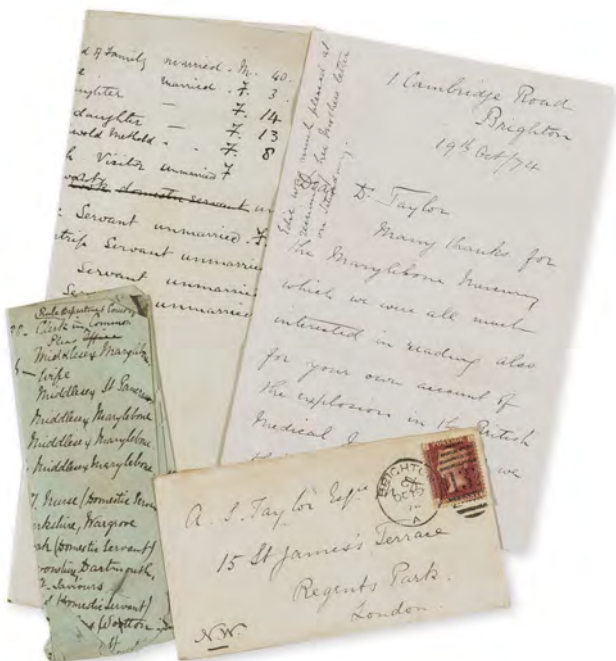 d of Family married . M. 40.
married . F. 3
ughter — F. 14
daughter — F. 13
wold Methold . . F. 8
h Visitor unmarried F
domestic servant un
Servant unmarried . F.
Servant unmarrie
Servant unmarri
Ser unmarrie
1 Cambridge Road
Brighton
19th Oct/74
Dr Taylor
Many thanks for
the Marylebone Mercury
which we were all most
interested in reading also
for your own account of
the explosion in the British
Medical J
we
Edie was much pleased at
receiving her Mothers letter
on Saturday.
Clerk in Common
Pleas Office
Middlesex Marylebo
Wife
Middlesex St Pancras
Middlesex Marylebone
Middlesex Marylebone
Middlesex Marylebone
F. Nurse (Domestic Serv
rkshire, Wargrove
(Domestic Servant)
Dartmouth,
St. Saviours
(Domestic Servant)
Wootton
A. S. Taylor Esqre
15 St James's Terrace
Regents Park.
London.
N.W.
BRIGHTO
OC
A